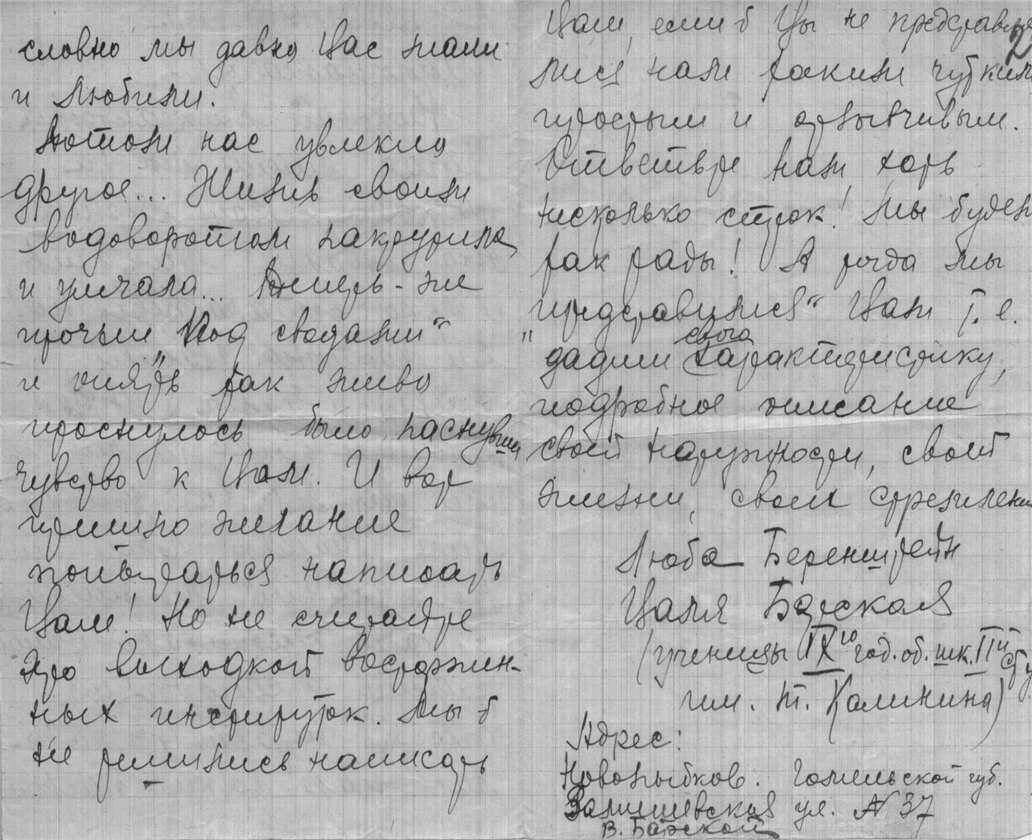 словно мы давно Вас знали
и любили.
Потом нас увлекло
другое... Жизнь своим
водоворотом закружила
и умчала... Теперь-же
прочли „Под сводами“
и опять так живо
проснулось было заснувшее
чувство к Вам. И вот
пришло желание
попытаться написать
Вам! Но не считайте
это выходкой восторжен-
ных институток. Мы б
не решились написать
2
Вам, если б Вы не представля-
лись нам таким чутким
простым и отзывчивым.
Ответьте нам хоть
несколько строк! Мы будем
так рады! А тогда мы
„представимся“ Вам т. е.
дадим свою характеристику,
подробное описание
своей наружности, своей
жизни, своих стремлений
Люба Беренштейн
Цаля Барская
(ученицы IX го год. об. шк. II й сту
им. т. Калинина)
Адрес:
Новозыбков. Гомельской губ.
Замишевская ул. № 37
В. Барской